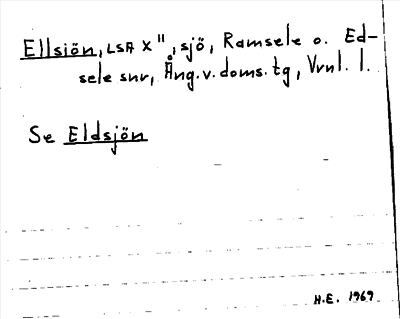 Ellsjön, LSA X", sjö, Ramsele o. Ed-
sele snr, Ång.v.doms.tg, Vrnl. l.
Se Eldsjön
H.E. 1969